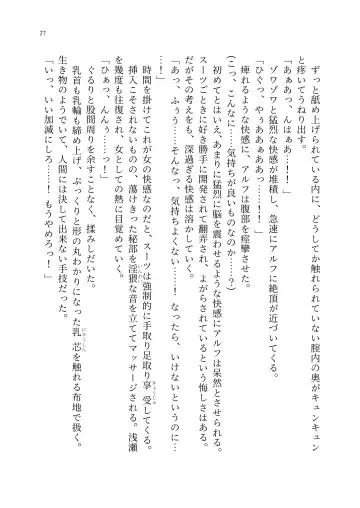 27
ずっと舐め上げられている内に、どうしてか触れられていない膣内の奥がキュンキュン
と疼いてうねり出す。
「あぁあっ、んはぁあ…！！」
ゾワゾワと猛烈な快感が堆積し、急速にアルフに絶頂が近づいてくる。
「ひぐっ、やぁああぁああっ……！！」
痺れるような快感に、アルフは腹部を痙攣させた。
(こっ、こんなに……気持ちが良いものなのか……？)
初めてとはいえ、あまりに猛烈に脳を震わせるような快感にアルフは呆然とさせられる。
スーツごときに好き勝手に開発されて翻弄され、よがらされているという悔しさはある。
だがその考えをも、深過ぎる快感は溶かしていく。
「あっ、ふぅう……そんなっ、気持ちよくない……！　なったら、いけないというのに…
…！」
時間を掛けてこれが女の快感なのだと、スーツは強制的に手取り足取り享受してくる。
挿入こそされないものの、蕩けきった秘部を淫猥な音を立ててマッサージされる。浅瀬
を幾度も往復され、女としての熱に目覚めていく。
「ひぁっ、んんぅ……っ！」
ぐるりと股間周りを余すことなく、揉みしだいた。
乳首も乳輪も締め上げ、ぷっくりと形の丸わかりになった乳芯を触れる布地で扱く。
生き物のようでいて、人間には決して出来ない手技だった。
「いっ、いい加減にしろ……！　もうやめろっ！」